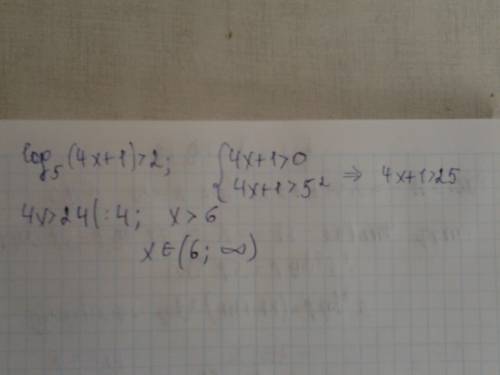 log₅(4x+1)>2; {4x+1>0
{4x+1>5² ⇒ 4x+1>25
4x>24 |:4; x>6
x∈(6; ∞)